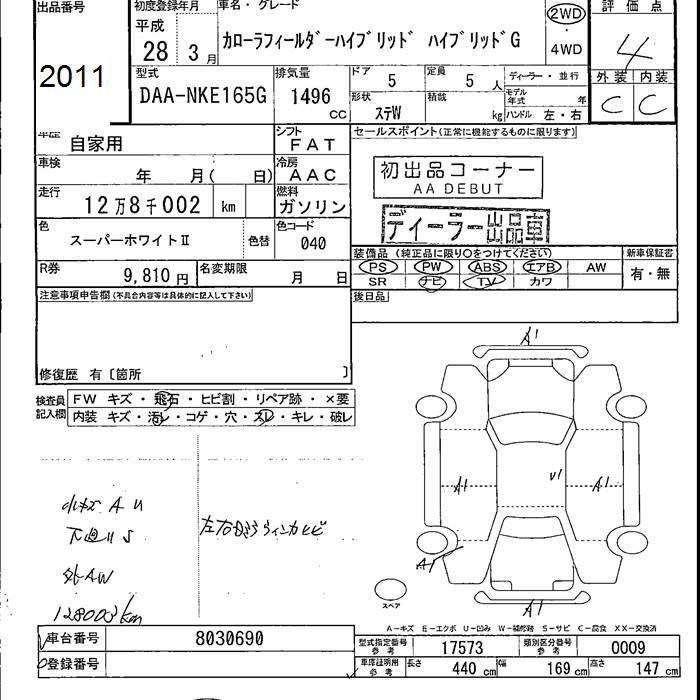 出品番号 2011
初度登録年月 平成 28 3月
車名・グレード
ｶﾛｰﾗﾌｨｰﾙﾀﾞｰﾊｲﾌﾞﾘｯﾄﾞ ﾊｲﾌﾞﾘｯﾄﾞG
2WD ・ 4WD
評価点 4
外装 内装
C C
型式 DAA-NKE165G
排気量 1496 CC
ドア 5
定員 5 人
ディーラー・並行
形状 ｽﾃW
積載 kg
モデル年式 年
ハンドル 左・右
車歴 自家用
シフト FAT
車検 年 月( 日)
冷房 AAC
走行 12万8千002 km
燃料 ガソリン
色 スーパーホワイトⅡ 色替
色コード 040
R券 9,810円
名変期限 月 日
セールスポイント(正常に機能するものに限ります)
初出品コーナー
AA DEBUT
ディーラー出品車
装備品(純正品に限り○をつけてください)
新車保証書
PS PW ABS エアB AW
有・無
SR ナビ TV カワ
後日品
注意事項申告欄(不具合内容等は具体的に記入して下さい)
修復歴 有〔箇所 〕
検査員記入欄
FW キズ・飛石・ヒビ割・リペア跡・×要
内装 キズ・汚レ・コゲ・穴・スレ・キレ・破レ
小キズ A U
下廻りS
外AW
128002km
左右ドアミラーウィンカヒビ
A1
A1
U1
A1
A1
A1
スペア
A－キズ E－エクボ U－凹み W－補修跡 S－サビ C－腐食 XX－交換済
車台番号 8030690
登録番号
型式指定番号 参考 17573
類別区分番号 参考 0009
車庫証明用 参考 長さ 440 cm 幅 169 cm 高さ 147 cm